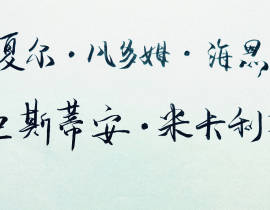 夏尔·凡多姆·海
斯蒂安·米卡利